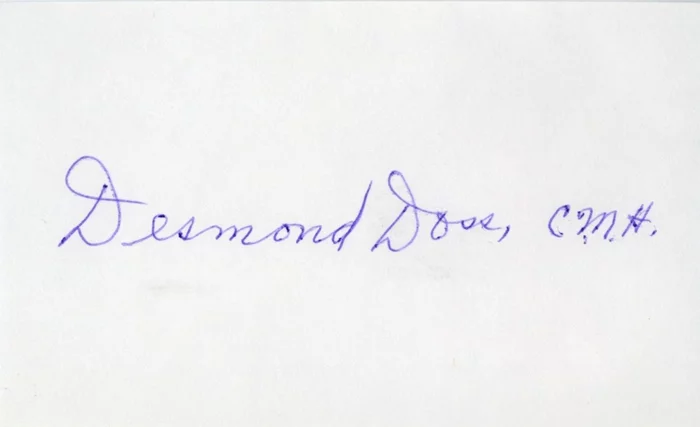 Desmond Doss, C.M.H.